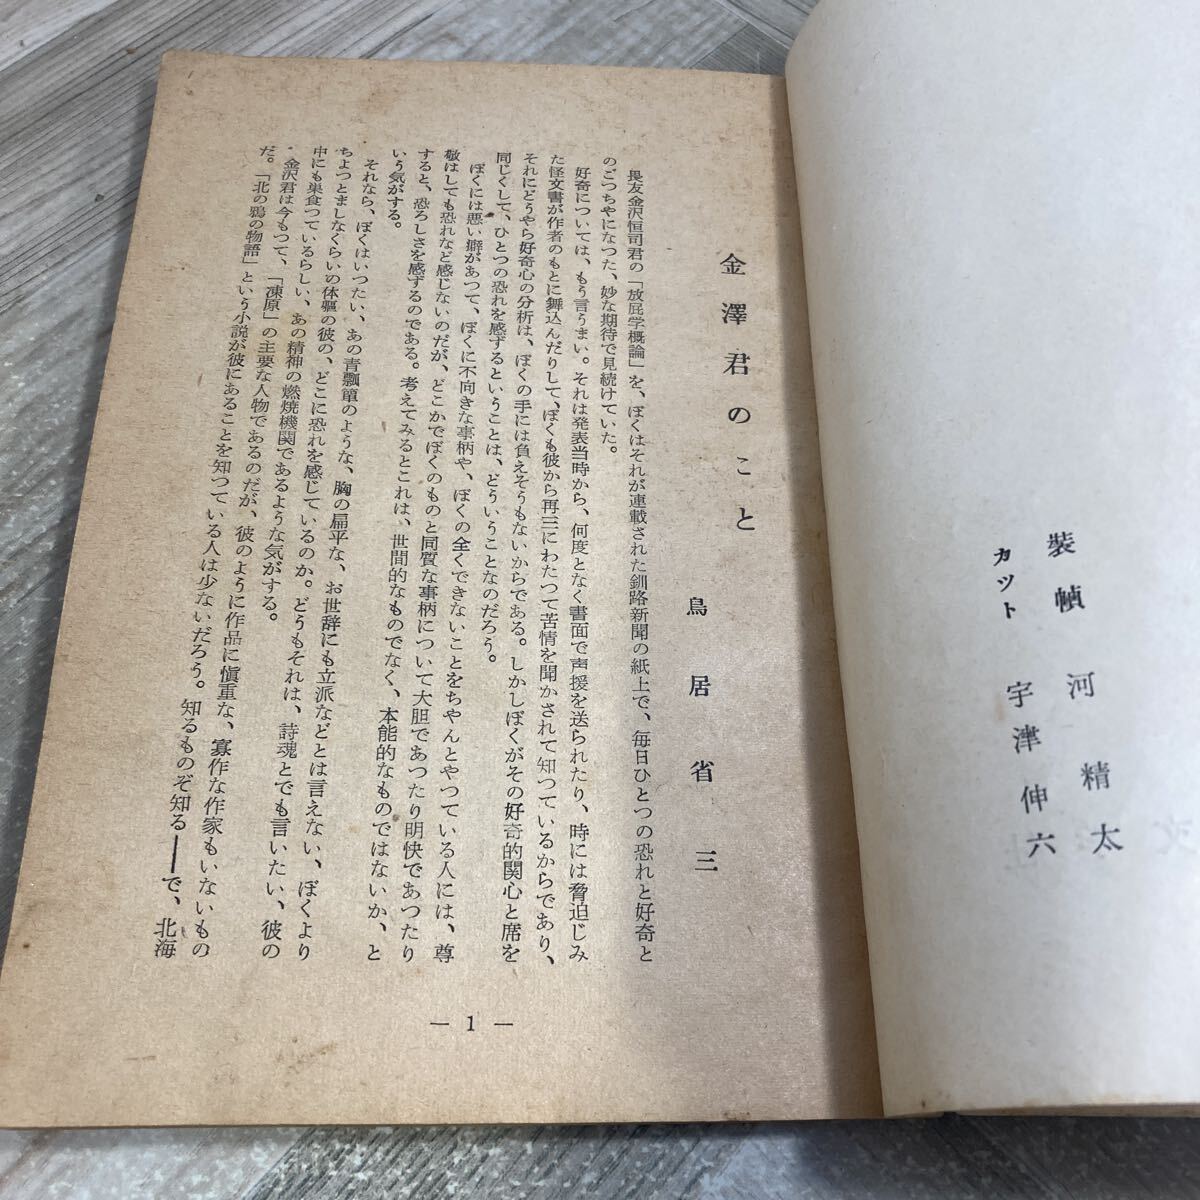 装幀　河　精太
カツト　宇津伸六
金澤君のこと
鳥居省三
畏友金沢恒司君の「放屁学概論」を、ぼくはそれが連載された釧路新聞の紙上で、毎日ひとつの恐れと好奇と
のごつちやになつた、妙な期待で見続けていた。
好奇については、もう言うまい。それは発表当時から、何度となく書面で声援を送られたり、時には脅迫じみ
た怪文書が作者のもとに舞込んだりして、ぼくも彼から再三にわたつて苦情を聞かされて知つているからであり、
それにどうやら好奇心の分析は、ぼくの手には負えそうもないからである。しかしぼくがその好奇的関心と席を
同じくして、ひとつの恐れを感ずるということは、どういうことなのだろう。
ぼくには悪い癖があつて、ぼくに不向きな事柄や、ぼくの全くできないことをちやんとやつている人には、尊
敬はしても恐れなど感じないのだが、どこかでぼくのものと同質な事柄について大胆であつたり明快であつたり
すると、恐ろしさを感ずるのである。考えてみるとこれは、世間的なものでなく、本能的なものではないか、と
いう気がする。
それなら、ぼくはいつたい、あの青瓢箪のような、胸の扁平な、お世辞にも立派などとは言えない、ぼくより
ちよつとましなくらいの体軀の彼の、どこに恐れを感じているのか。どうもそれは、詩魂とでも言いたい、彼の
中にも巣食つているらしい、あの精神の燃焼機関であるような気がする。
金沢君は今もつて、「凍原」の主要な人物であるのだが、彼のように作品に慎重な、寡作な作家もいないもの
だ。「北の鴉の物語」という小説が彼にあることを知つている人は少ないだろう。知るものぞ知る――で、北海
— 1 —